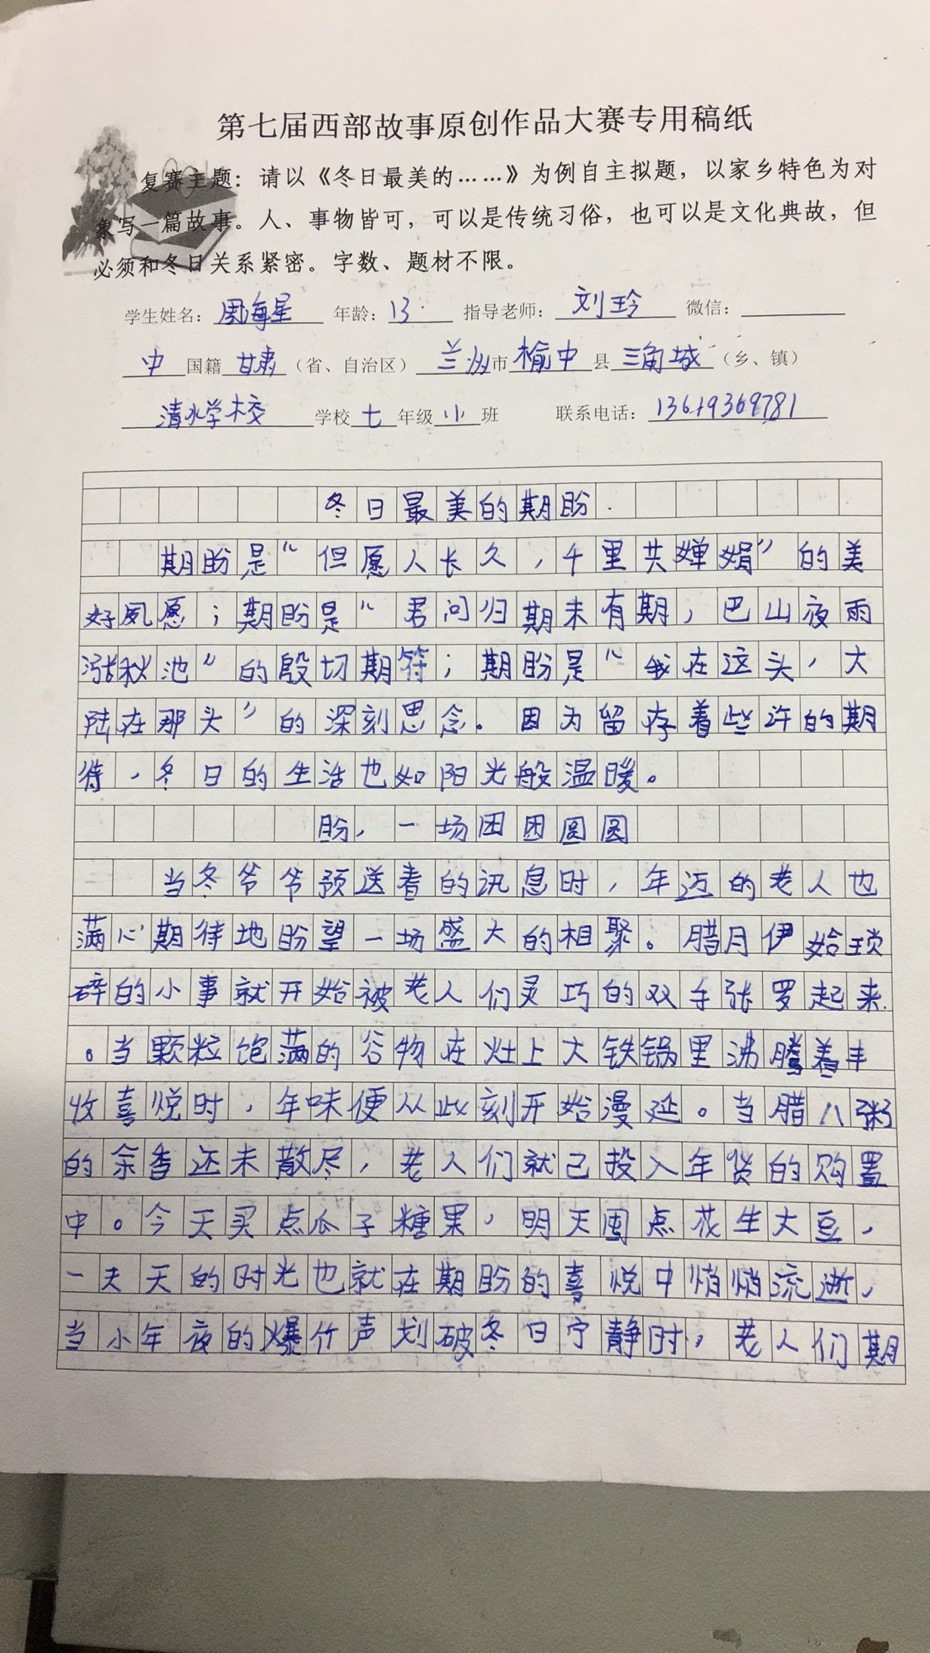 第七届西部故事原创作品大赛专用稿纸
复赛主题：请以《冬日最美的……》为例自主拟题，以家乡特色为对
象写一篇故事。人、事物皆可，可以是传统习俗，也可以是文化典故，但
必须和冬日关系紧密。字数、题材不限。
学生姓名：周海星 年龄：13 指导老师：刘玲 微信：
中国籍 甘肃（省、自治区）兰州市榆中县三角城（乡、镇）
清水学校 学校七年级 班 联系电话：13619369781
冬日最美的期盼
期盼是“但愿人长久，千里共婵娟”的美
好夙愿；期盼是“君问归期未有期，巴山夜雨
涨秋池”的殷切期符；期盼是“我在这头，大
陆在那头”的深刻思念。因为留存着些许的期
待，冬日的生活也如阳光般温暖。
盼，一场团团圆圆
当冬爷爷预送着的讯息时，年迈的老人也
满心期待地盼望一场盛大的相聚。腊月伊始琐
碎的小事就开始被老人们灵巧的双手张罗起来
。当颗粒饱满的谷物在灶上大铁锅里沸腾着丰
收喜悦时，年味便从此刻开始漫延。当腊八粥
的余香还未散尽，老人们就已投入年货的购置
中。今天买点瓜子糖果，明天囤点花生大豆，
一天天的时光也就在期盼的喜悦中悄悄流逝，
当小年夜的爆竹声划破冬日宁静时，老人们期